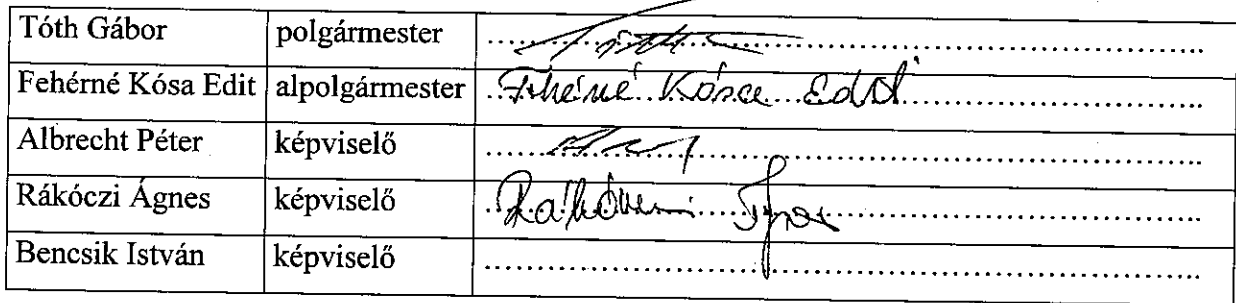 Tóth Gábor polgármester
Fehérné Kósa Edit alpolgármester Fehérné Kósa Edit
Albrecht Péter képviselő
Rákóczi Ágnes képviselő Rákóczi Ágnes
Bencsik István képviselő